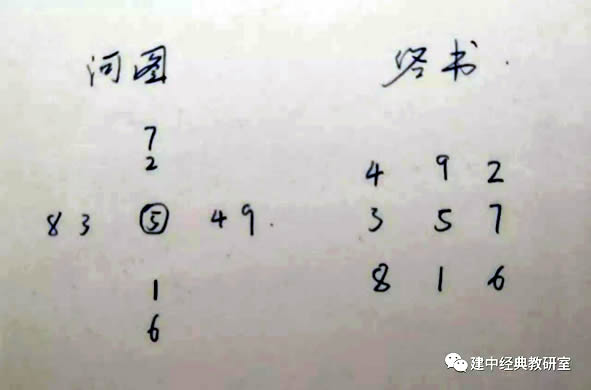 河图 洛书
7
2
4 9 2
8 3 5 4 9 3 5 7
1 8 1 6
6
建中经典教研室